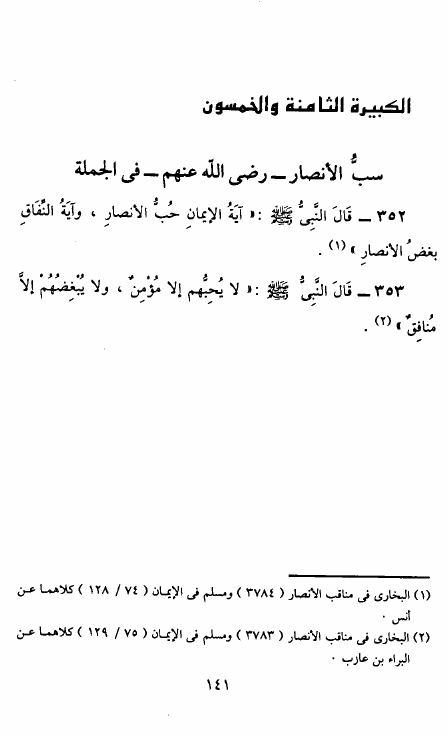 الكبيرة الثامنة والخمسون
سبُّ الأنصار ــ رضى الله عنهم ــ فى الجملة
٣٥٢ ــ قَالَ النَّبِىُّ ﷺ : « آيَةُ الإيمانِ حُبُّ الأنصارِ ، وآيَةُ النِّفَاقِ
بغضُ الأنصارِ » (١) .
٣٥٣ ــ قَالَ النَّبِىُّ ﷺ : « لا يُحِبُّهم إلا مُؤْمِنٌ ، ولا يُبْغِضُهُمْ إلاَّ
مُنافِقٌ » (٢) .
(١) البخارى فى مناقب الأنصار ( ٣٧٨٤ ) ومسلم فى الإيمان ( ٧٤ / ١٢٨ ) كلاهما عن
أنس ٠
(٢) البخارى فى مناقب الأنصار ( ٣٧٨٣ ) ومسلم فى الإيمان ( ٧٥ / ١٢٩ ) كلاهما عن
البراء بن عازب ٠
١٤١